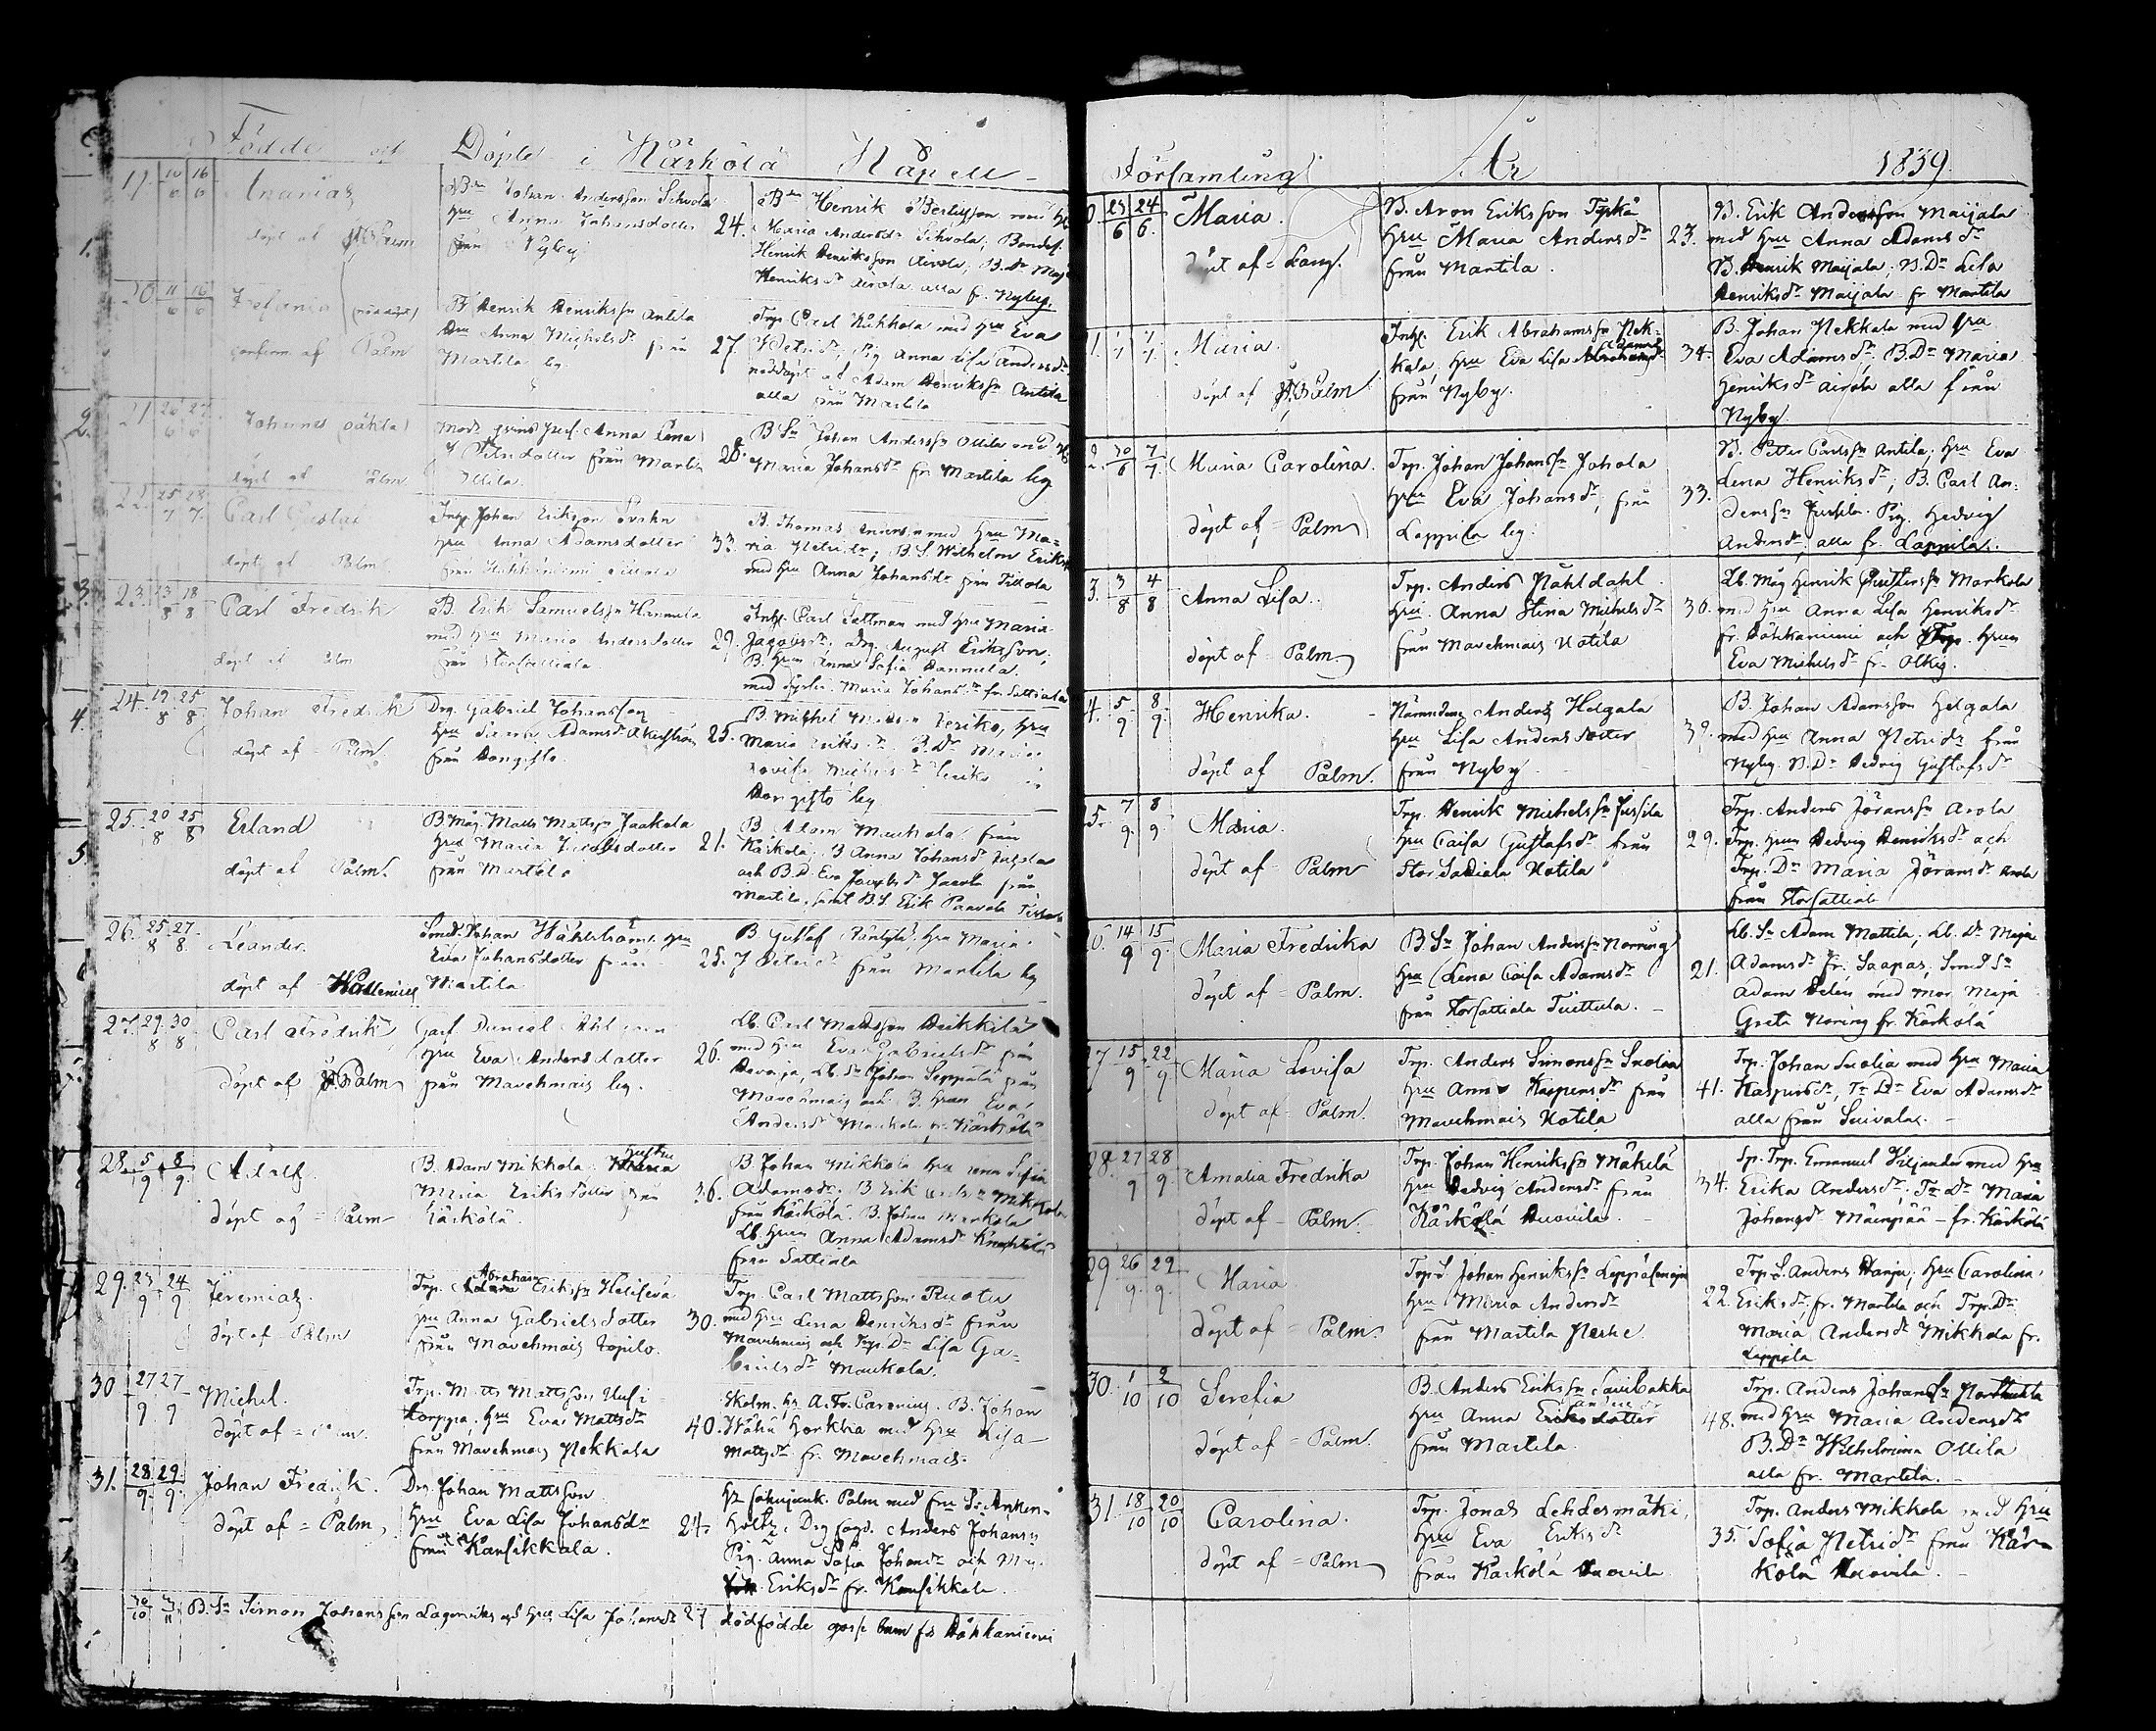 Födde och Döpte i Kärkölä Kapell-
19. 10/6 16/6 Ananias
döpt af Palm
Bn Johan Andersson Sihvola
Hru Anna Johansdotter
från Nyby
24.
Bn Henrik
Maria Andersdr Sihvola, Bondes.
Henrik Henriksson Airola, B.Dr Maja
Henriksdr Airola alla fr. Nyby.
20 11/6 16/6 (nöddöpt)
conferm. af Palm
B Henrik Henrikssn Antila
Hru Anna Michelsdr från
Martila by
27.
Trp Carl Kukkola med Hru Eva
Petridr, Pig Anna Lisa Andersdr
nöddöpt af Adam Henrikssn Antila
alla från Martila
21 26/6 27/6 Johannes (oäkta)
döpt af Palm
Anna Lena
Petridotter från Martila
Ollila
28.
B Sn Johan Anderssn Ollila med
Maria Johansdr fr Martila by
22. 25/7 28/7 Carl Gustaf
döpt af Palm
Inh Johan Eriksson
Hru Anna Adamsdotter
från
33.
B. Thomas med Hru Ma-
ria Petridr; B S Wilhelm Eriks
med Hru Anna Johansdr från
23. 13/8 18/8 Carl Fredrik
döpt af Palm
B. Erik Samuelssn Hannula
med Hru Maria Andersdotter
från Storsattiala
29.
Inh. Carl Settman med Hru Maria
Jacobsdr, Drg. August Eriksson,
B. Hrun Anna Sofia Hannula
med Maria Johansdr fr. Sattiala
24. 19/8 25/8 Johan Fredrik
döpt af = Palm
Drg. Gabriel Johansson
Hru Adamsdr Åkerström
från Hongisto.
25.
B Michel Hru
Maria Eriksdr B.Dr Maria
Lovisa Michelsdr
Hongisto by
25. 20/8 25/8 Erland
döpt af Palm.
B Måg Matts Mattssn Jaakola
Hru Maria Jacobsdotter
från Martila
21.
B Adam Maukola från
Kärkölä. B Anna Johansdr
och B.D. Eva Jacobsdr Jacola från
Martila, samt B.S. Erik Paavola
26. 25/8 27/8 Leander
döpt af Wallenius
Smed. Johan Wahlström, Hru
Eva Johansdotter från
Martila
25.
B Gustaf Hru Maria
Petersdr från Martila by
27. 29/8 30/8 Carl Fredrik
döpt af Palm
Daniel
Hru Eva Andersdotter
från Mavehmais by.
26.
Lb. Carl Mattsson Heikkilä
med Hru Eva Gabrielsdr från
Lb. Sn Johan Seppälä från
Mavehmais och B. Hrun Eva
Andersdr Maukola fr Kärkölä
28. 5/9 8/9 Adolf
döpt af = Palm
B. Adam Mikkola Hustru
Maria Eriksdotter från
Kärkölä.
36.
B. Johan Mikkola Hru Anna Sofia
Adamsdr. B Erik Mikkola
från Kärkölä. B. Johan Maukola
Lb. Hrun Anna Adamsdr Knaptila
från Sattiala
29. 23/9 24/9 Jeremias.
döpt af = Palm
Trp. Adam Abraham Eriksson Helisevä
Hru Anna Gabrielsdotter
från Mavehmais Topilo.
30.
Trp. Carl Mattsson Ruotu
med Hru Lena Henriksdr från
Mavehmais och Trp. Dr Lisa Ga-
brielsdr Maukola.
30 27/9 27/9 Michel.
döpt af =
Trp. Matts Mattsson Uusi
torppa, Hru Eva Mattsdr
från Mavehmais Nekkala
40.
Skolm. Hr A. Fr. Carenius. B. Johan
Wähä Horkka med Hru Lisa
Mattsdr fr. Mavehmais.
31. 28/9 29/9 Johan Fredrik.
döpt af = Palm
Drg. Johan Mattsson
Hru Eva Lisa Johansdr
från Kansikkala.
24.
Hr Palm med Fru S: Anken-
holtz, Drg Anders Johanss
Pig. Anna Sofia Johansdr och
Eriksdr fr. Kansikkala.
30/10 3/11 B. Sn Simon Johansson med Hru Lisa Johansdr 27 dödfödde gosse barn fr Hähkäniemi
Församling År 1839.
23/6 24/6 Maria.
döpt af = Lang.
B. Aron Eriksson Tyrkä
Hru Maria Andersdr
från Martila.
23.
B. Erik Andersson Maijala
med Hru Anna Adamsdr
B. Henrik Maijala, B.Dr Lisa
Henriksdr Maijala fr Martila
1/7 7/7 Maria.
döpt af Palm
Inh. Erik Abrahamssn Nek-
kala, Hru Eva Lisa Adamsdr
från Nyby.
34.
B. Johan Nekkala med Hru
Eva Adamsdr. B.Dr Maria
Henriksdr Airola alla från
Nyby.
30/6 7/7 Maria Carolina.
döpt af = Palm
Trp. Johan Johanssn Johola
Hru Eva Johansdr, från
Lappila by.
33.
B. Petter Carlssn Antila, Hru Eva
Lena Henriksdr, B. Carl An-
derssn Jussila. Pig. Hedvig
Andersdr, alla fr. Lappila.
3/8 4/8 Anna Lisa.
döpt af = Palm
Trp. Anders Påhldahl
Hru Anna Stina Michelsdr
från Mavehmais Uotila
30.
Lb. Måg Henrik Maukola
med Hru Anna Lisa Henriksdr
fr. Hähkäniemi och Trp. Hrun
Eva Michelsdr fr.
5/9 8/9 Henrika.
döpt af Palm.
Nämndem Anders Helgala
Hru Lisa Andersdotter
från Nyby
39.
B. Johan Adamsson Helgala
med Hru Anna Petridr från
Nyby. B.Dr Hedvig Gustafsdr
25. 7/9 8/9 Maria.
döpt af = Palm
Trp. Henrik Michelssn Jussila
Hru Caisa Gustafsdr från
Stor Sattiala Uotila
29.
Trp. Anders Jöranssn Arola
Trp. Hrun Hedvig Henriksdr och
Trp. Dr Maria Jöransdr Arola
från Storsattiala
14/9 15/9 Maria Fredrika
döpt af = Palm.
B. Sn Johan Anderssn Norring
Hru Lena Caisa Adamsdr
från Storsattiala Tiittula.
21.
Lb. Sn Adam Mattila, Lb. Dr Maja
Adamsdr fr. Saapas, Smed Sn
Adam Helin med mor Maja
Greta Noring fr. Kärkölä
27 15/9 22/9 Maria Lovisa
döpt af = Palm.
Trp. Anders Simonssn Suolia
Hru Anna Kaspersdr från
Mavehmais Uotila
41.
Trp. Johan Suolia med Hru Maria
Kaspersdr, Tr Dr Eva Adamsdr
alla från
28. 27/9 28/9 Amalia Fredrika
döpt af = Palm.
Trp. Johan Henrikssn Mäkelä
Hru Hedvig Andersdr från
Kärkölä Huovila.
34.
Sp. Trp. Emanuel med Hru
Erika Andersdr, Tr Dr Maria
Johansdr Mäenpää - fr. Kärkölä
29 26/9 29/9 Maria
döpt af = Palm.
Trp.S. Johan Henrikssn
Hru Maria Andersdr
från Martila
22.
Trp.S. Anders Hanju, Hru Carolina
Eriksdr fr. Martila och Trp. Dr
Maria Andersdr Mikkola fr.
Lappila
30. 1/10 2/10 Serefia
döpt af = Palm.
B. Anders Erikssn Savibakka
Hru Anna Eriksdotter
från Martila.
48.
Trp. Anders Johanssn
med Hru Maria Andersdr
B. Dr Wilhelmina Ollila
alla fr. Martila.
31. 18/10 20/10 Carolina.
döpt af = Palm
Trp. Jonas Lehdesmäki,
Hru Eva Eriksdr
från Kärkölä Huovila
35.
Trp. Anders Mikkola med Hru
Sofia Petridr från Kär-
kölä Huovila.